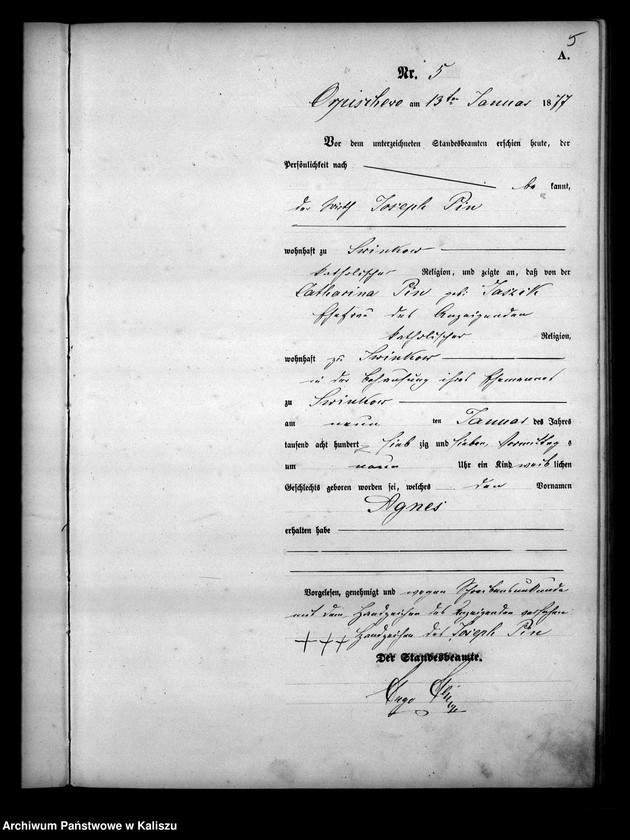 5
A.
Nr. 5
Orpischewo am 13ten Januar 1877
Vor dem unterzeichneten Standesbeamten erschien heute, der
Persönlichkeit nach
be kannt,
der Wirth Joseph Pin
wohnhaft zu Swinkow
katholischer Religion, und zeigte an, daß von der
Catharina Pin geb. Jaszik
Ehefrau des Anzeigenden
katholischer Religion,
wohnhaft zu Swinkow
in der Behausung ihres Ehemannes
zu Swinkow
am neun ten Januar des Jahres
tausend acht hundert sieb zig und sieben Vormittag s
um neun Uhr ein Kind weib lichen
Geschlechts geboren worden sei, welches den Vornamen
Agnes
erhalten habe
Vorgelesen, genehmigt und wegen Schreibensunkunde
mit dem Handzeichen des Anzeigenden versehen
+++ Handzeichen des Joseph Pin
Der Standesbeamte.
Hugo
Archiwum Państwowe w Kaliszu